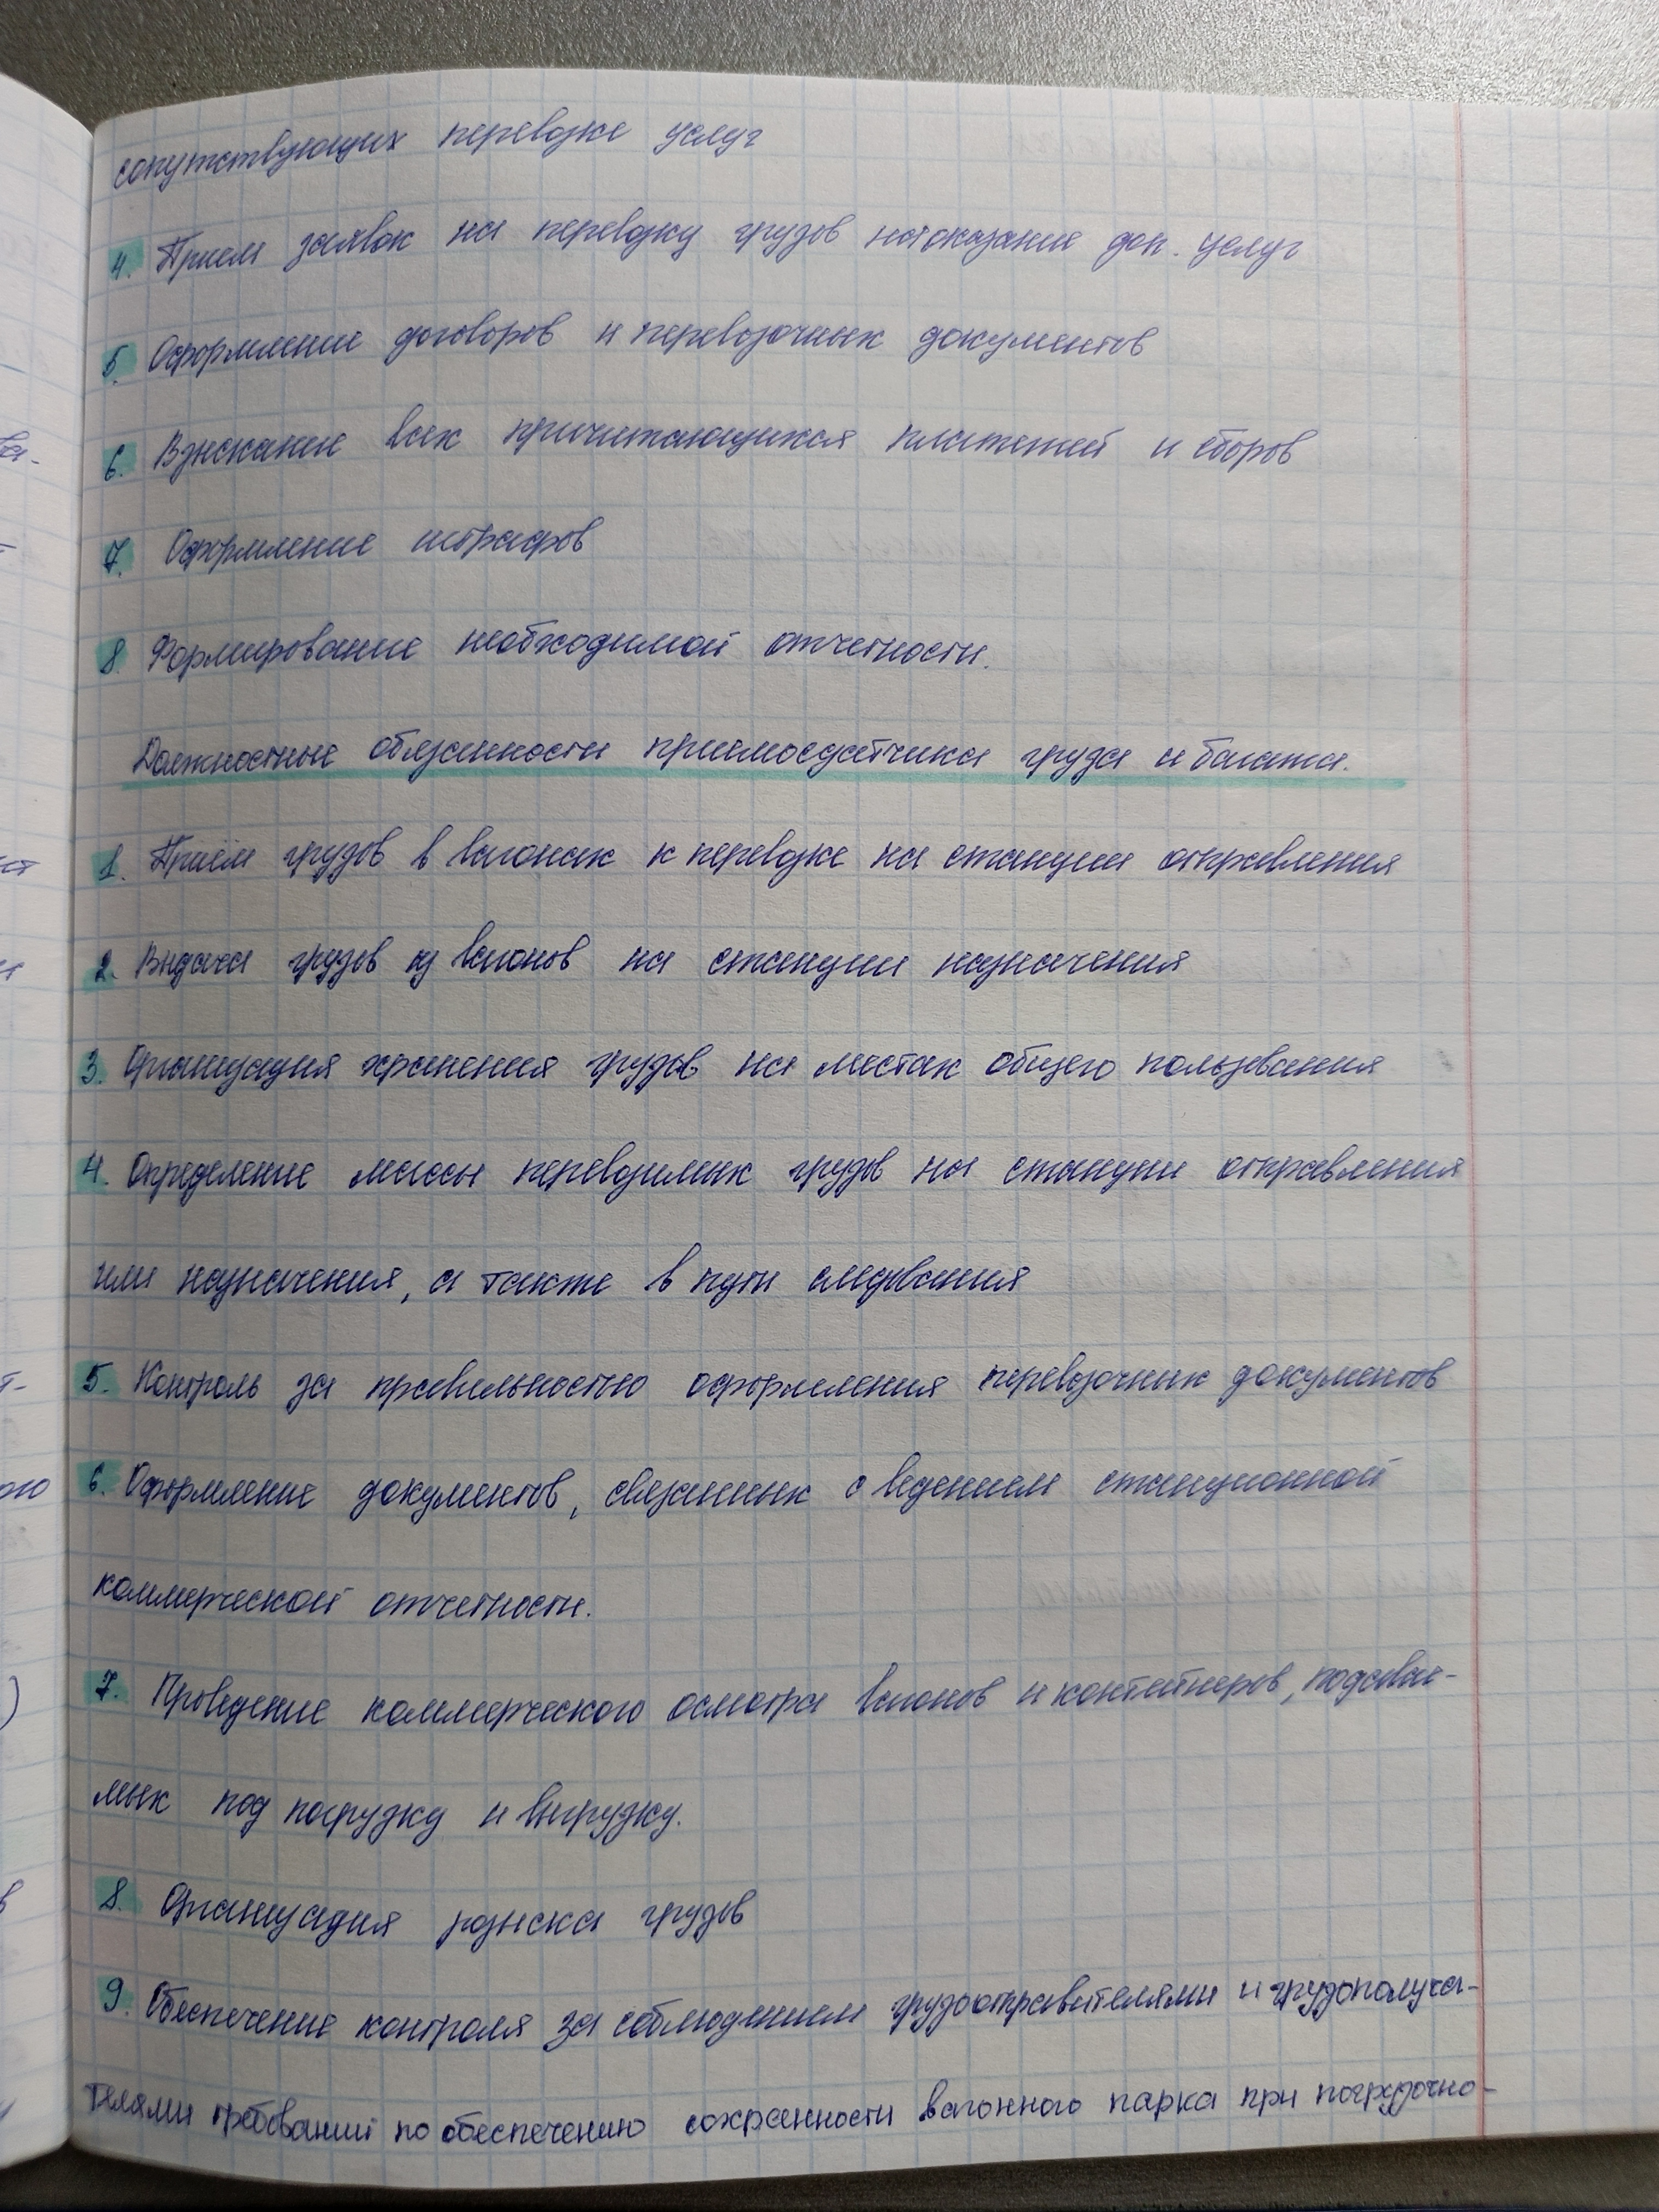 сопутствующих перевозке услуг
4. Прием заявок на перевозку грузов на оказание доп. услуг
5. Оформление договоров и перевозочных документов
6. Взыскание всех причитающихся платежей и сборов
7. Оформление штрафов
8 Формирование необходимой отчетности.
Должностные обязанности приемосдатчика груза и багажа.
1. Приём грузов в вагонах к перевозке на станции отправления
2. Выдача грузов из вагонов на станции назначения
3. Организация хранения грузов на местах общего пользования
4. Определение массы перевозимых грузов на станции отправления
или назначения, а также в пути следования
5. Контроль за правильностью оформления перевозочных документов
6. Оформление документов, связанных с ведением станционной
коммерческой отчетности.
7. Проведение коммерческого осмотра вагонов и контейнеров, подавае-
мых под погрузку и выгрузку.
8. Организация розыска грузов
9. Обеспечение контроля за соблюдением грузоотправителями и грузополуча-
телями требований по обеспечению сохранности вагонного парка при погрузочно-